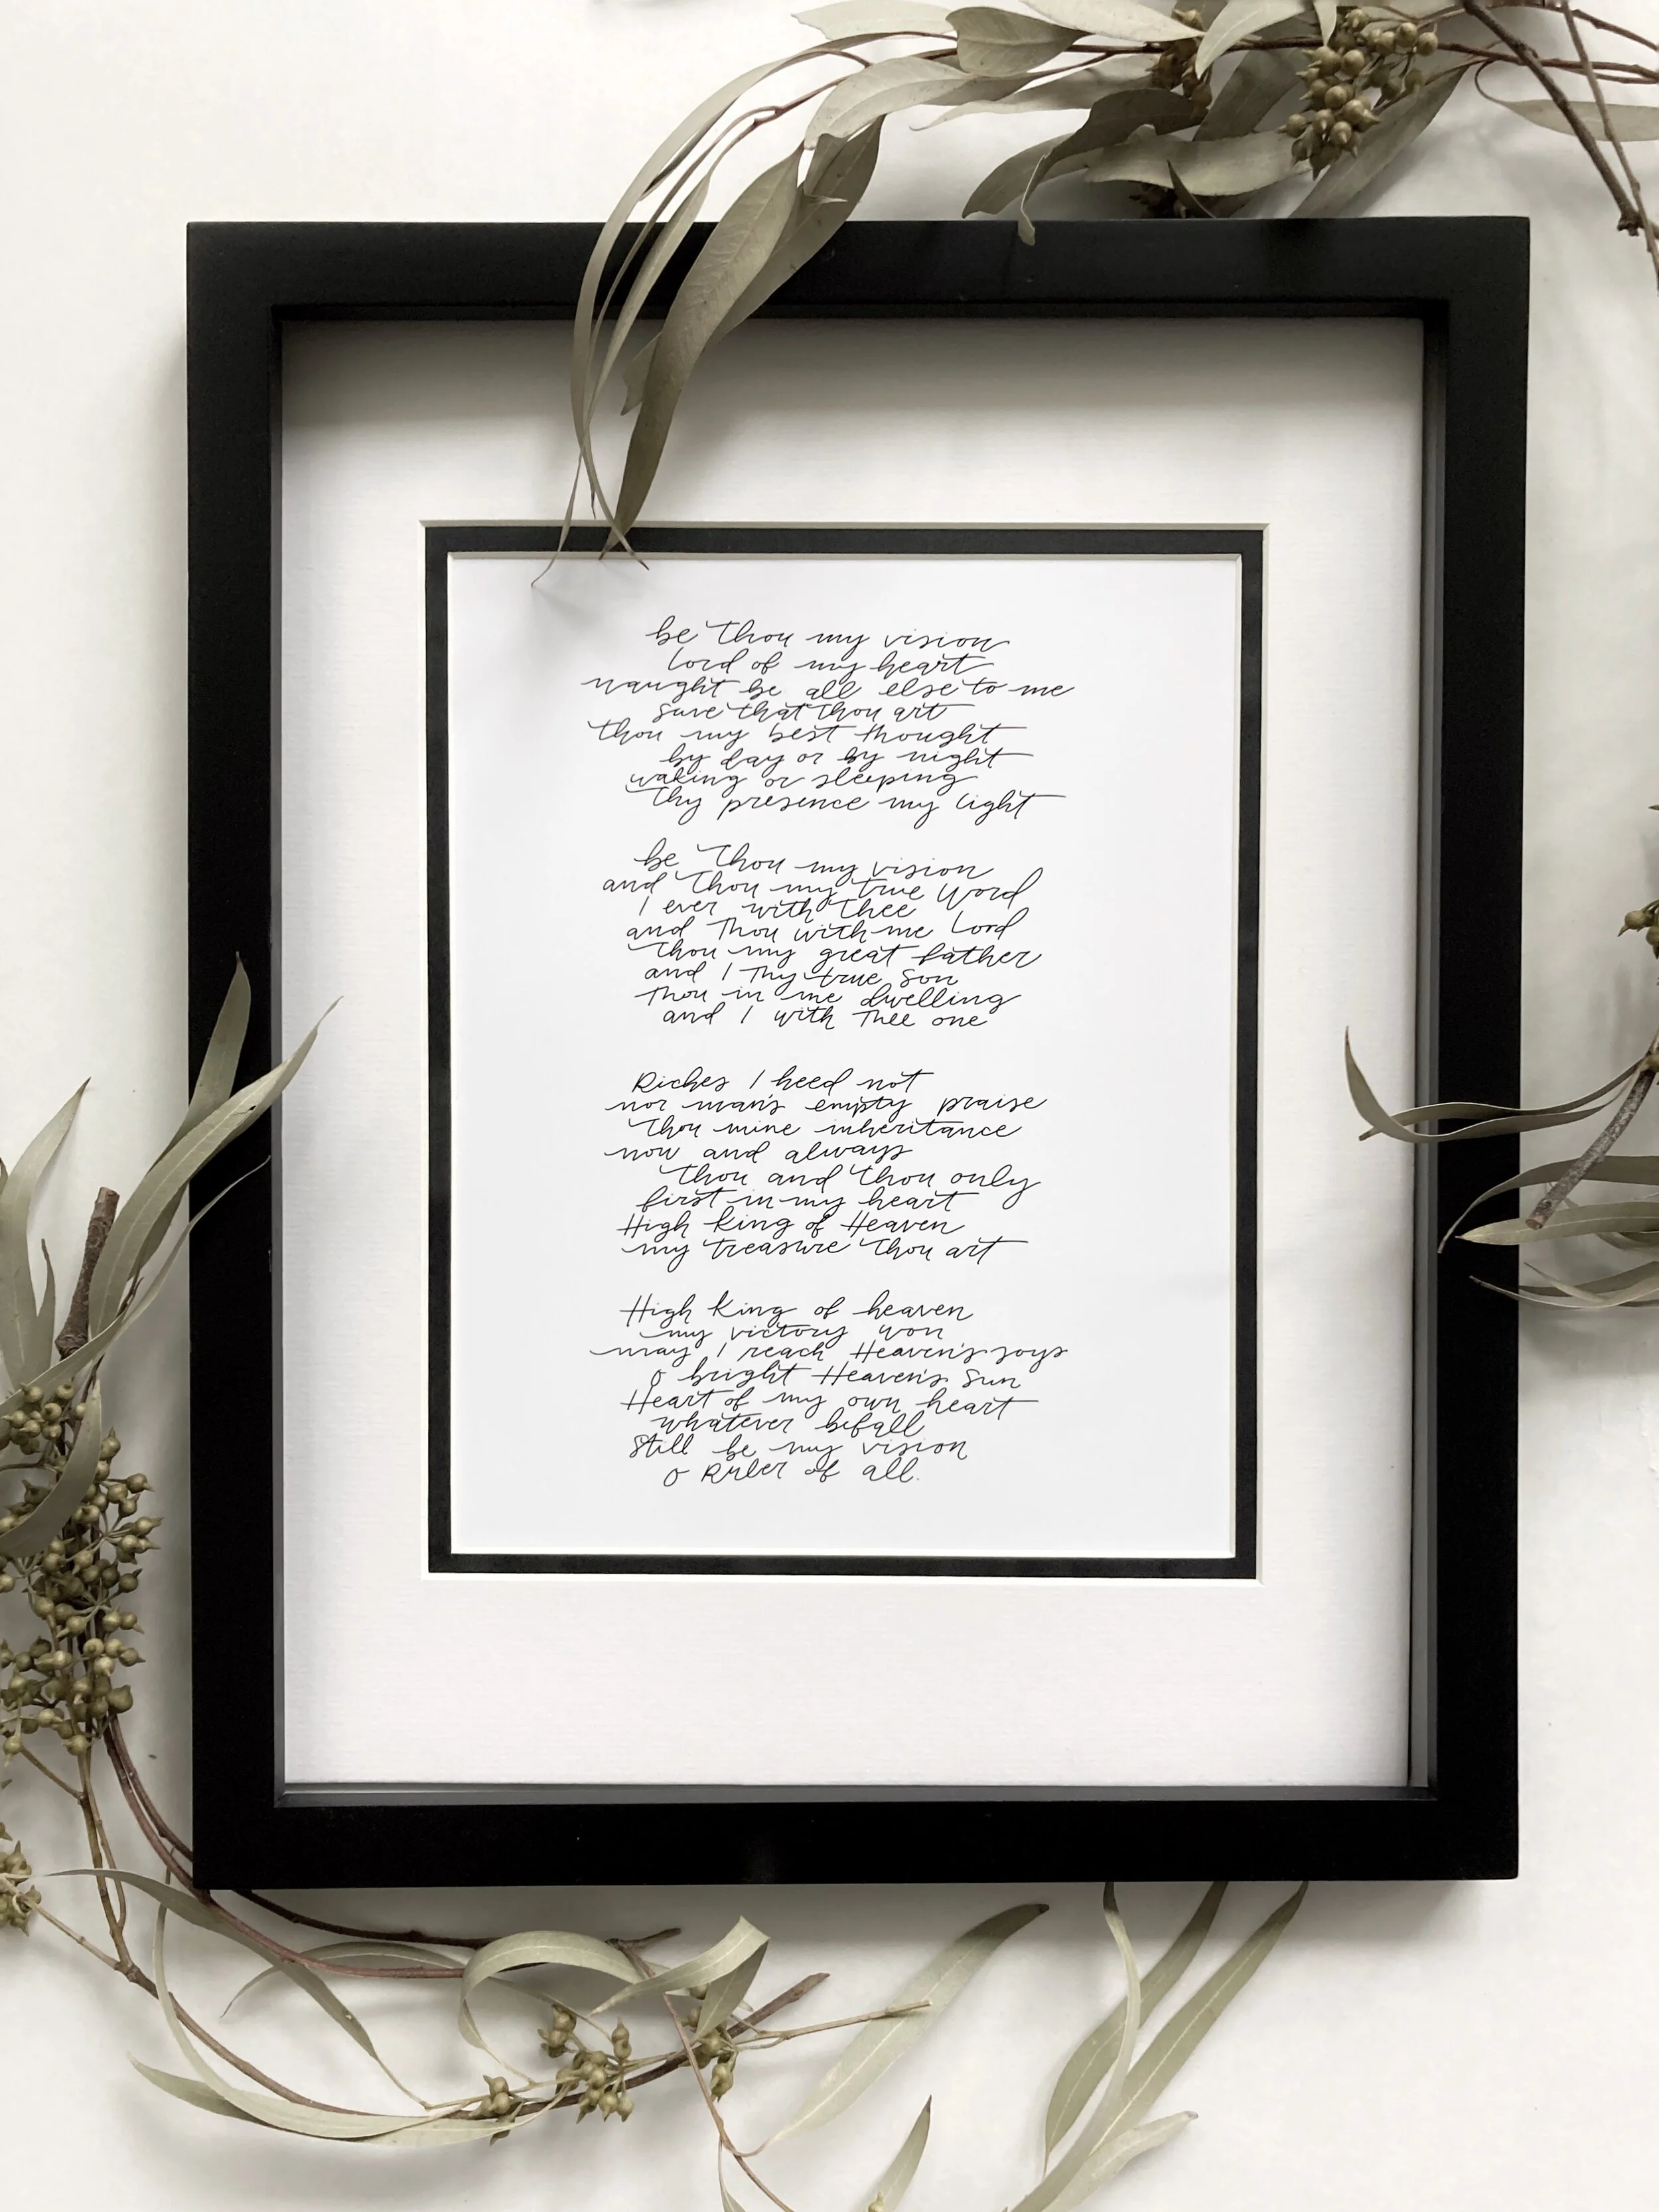 be Thou my vision
Lord of my heart
naught be all else to me
save that Thou art
Thou my best thought
by day or by night
waking or sleeping
Thy presence my light
be Thou my vision
and Thou my true Word
I ever with Thee
and Thou with me Lord
Thou my great father
and I Thy true son
Thou in me dwelling
and I with Thee one
Riches I heed not
nor man's empty praise
Thou mine inheritance
now and always
Thou and Thou only
first in my heart
High King of Heaven
my treasure Thou art
High King of heaven
my victory won
may I reach Heaven's joys
o bright Heaven's Sun
Heart of my own heart
whatever befall
Still be my vision
o Ruler of all.